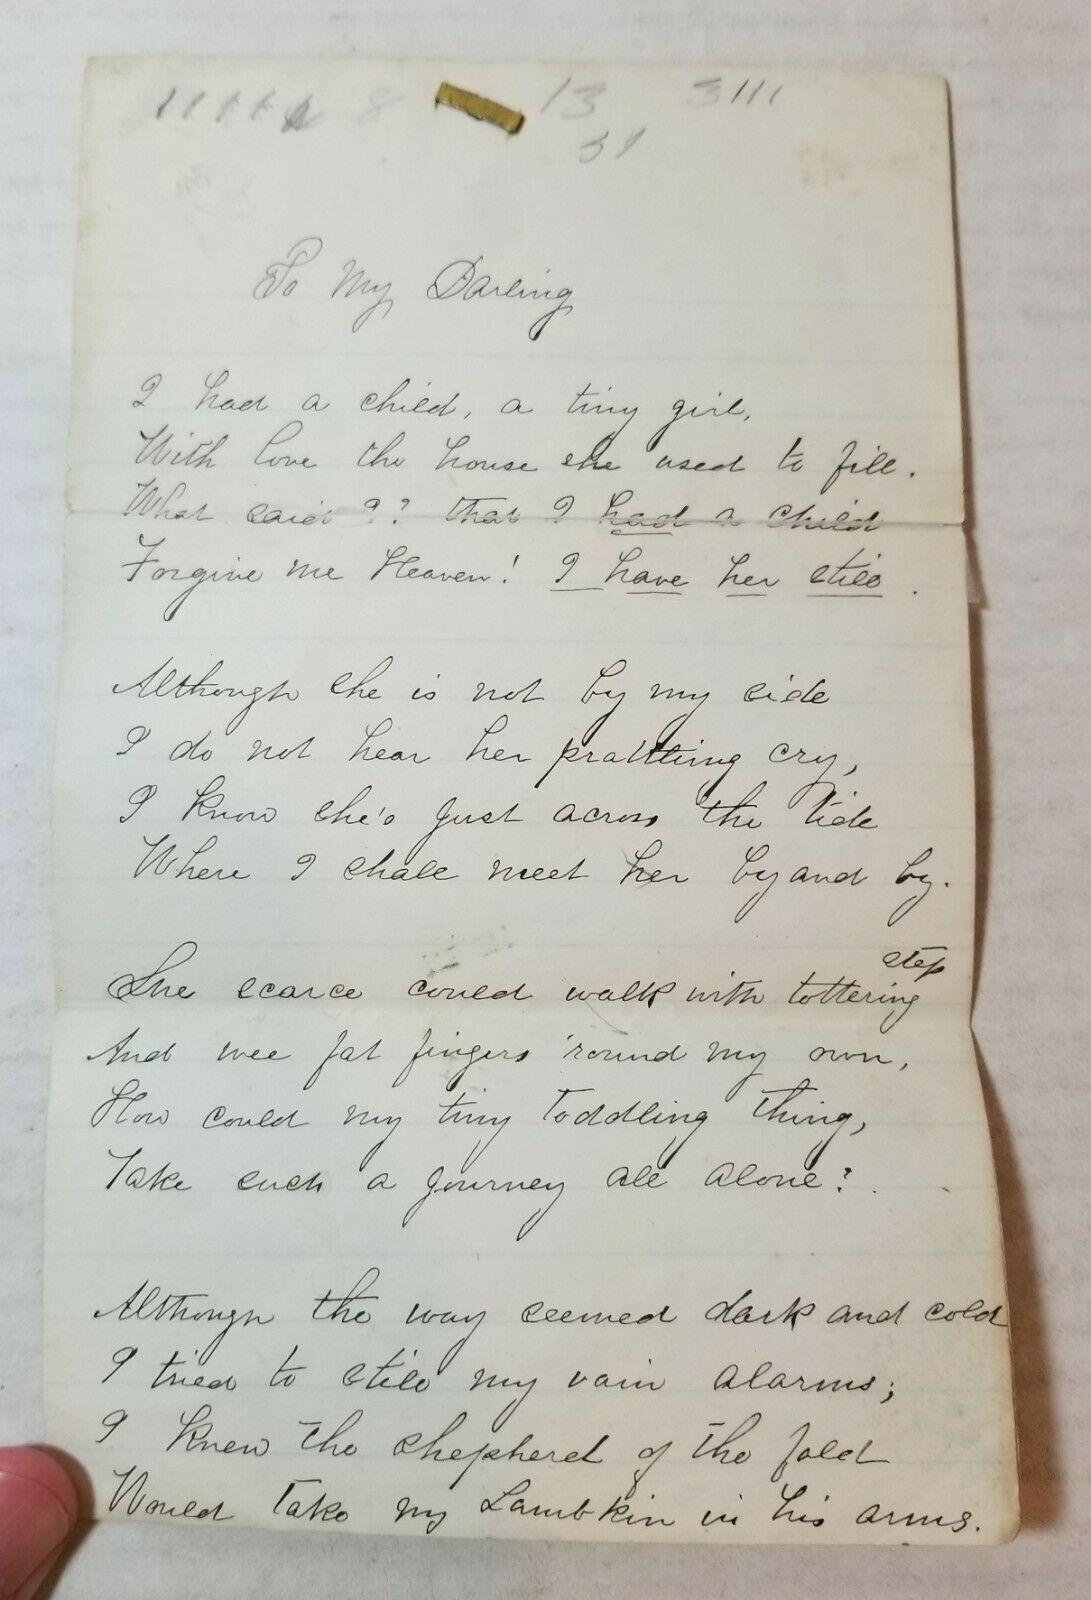 13 3111
31
To My Darling
I had a child, a tiny girl,
With love the house she used to fill.
What said I? that I had a child
Forgive me Heaven! I have her still.
Although she is not by my side
I do not hear her prattling cry,
I know she's just across the tide
Where I shall meet her by and by.
She scarce could walk with tottering step
And wee fat fingers 'round my own,
How could my tiny toddling thing,
Take such a journey all alone?
Although the way seemed dark and cold
I tried to still my vain alarms;
I knew the shepherd of the fold
Would take my Lambkin in his arms.